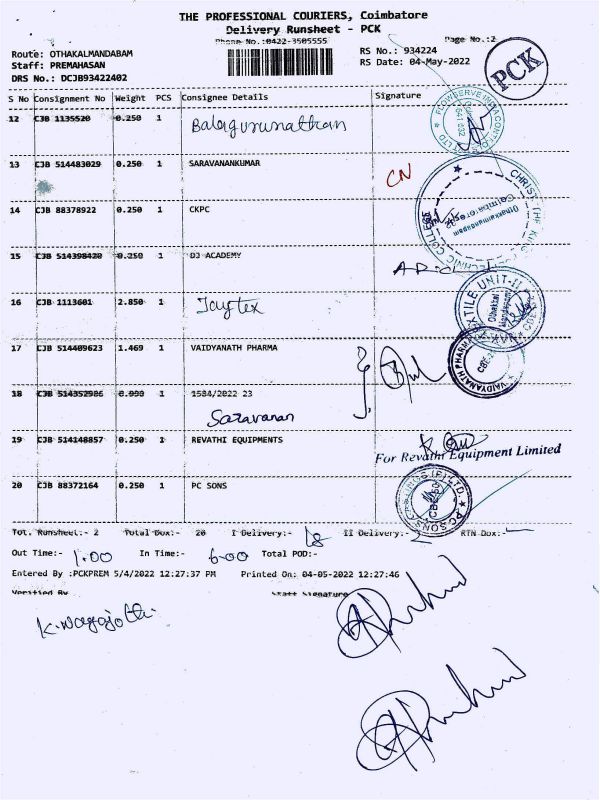 THE PROFESSIONAL COURIERS, Coimbatore
Delivery Runsheet - PCK
Phone No.:0422-3505555
Page No.:2
Route: OTHAKALMANDABAM
RS No.: 934224
Staff: PREMAHASAN
RS Date: 04-May-2022
DRS No.: DCJB93422402
PCK
S No Consignment No Weight PCS Consignee Details Signature
12 CJB 1135520 0.250 1 Balagurunathan
13 CJB 514483029 0.250 1 SARAVANANKUMAR CN
14 CJB 88378922 0.250 1 CKPC
15 CJB 514398420 0.250 1 DJ ACADEMY
16 CJB 1113601 2.850 1 Jaytex
17 CJB 514409623 1.469 1 VAIDYANATH PHARMA
18 CJB 514352986 0.990 1 1584/2022 23
Saravanan
19 CJB 514148857 0.250 1 REVATHI EQUIPMENTS
For Revathi Equipment Limited
20 CJB 88372164 0.250 1 PC SONS
Tot. Runsheet:- 2 Total Dox:- 20 I Delivery:- 18 II Delivery:- 2 RTN Dox:-
Out Time:- 1.00 In Time:- 6.00 Total POD:-
Entered By :PCKPREM 5/4/2022 12:27:37 PM Printed On: 04-05-2022 12:27:46
Verified By Staff Signature
K. Nagajothi